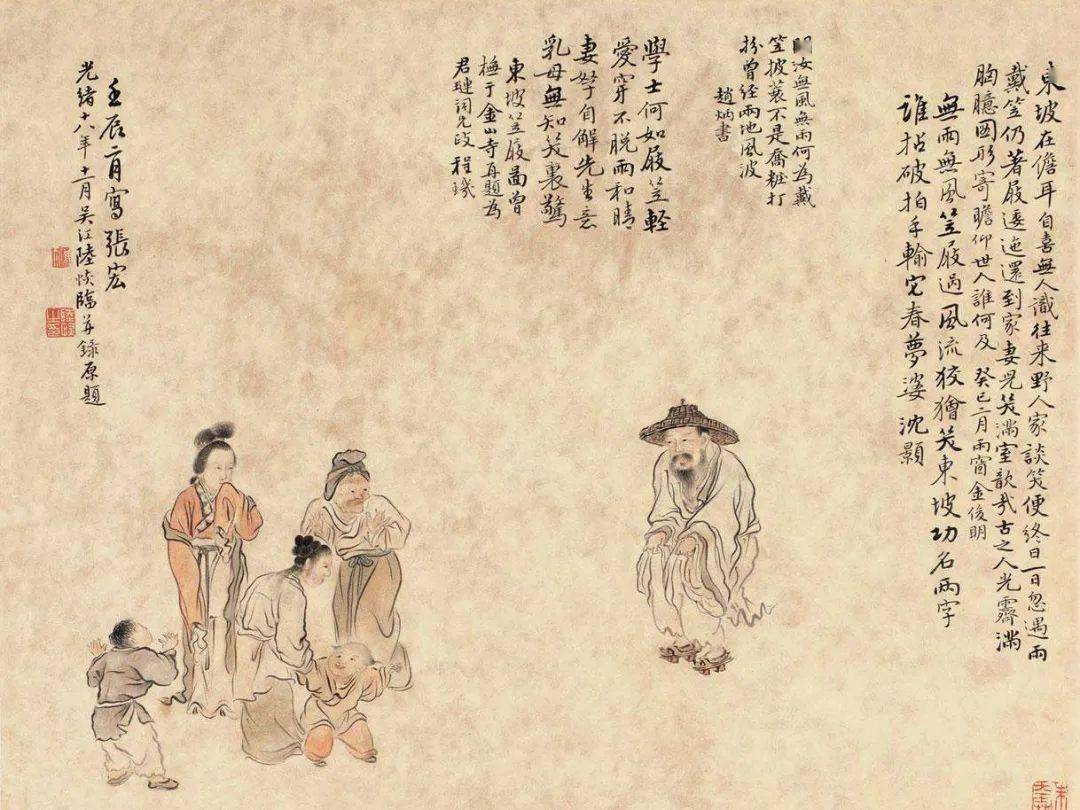 東坡在儋耳自喜無人識往来野人家談笑便終日一日忽遇雨
戴笠仍著屐逶迤還到家妻児笑滿室歆㢤古之人光霽滿
胸臆圖形寄瞻仰世人誰何及 癸巳二月雨窗金俊明
無雨無風笠屐過風流狡獪笑東坡功名兩字
誰拈破拍手輸它春夢婆 沈顥
問汝無風無雨何為戴
笠披蓑不是喬粧打
扮曾經兩地風波
趙炳書
學士何如屐笠軽
愛穿不脱雨和晴
妻孥自解先生意
乳母無知笑裏驚
東坡笠屐圖曾
橅于金山寺再題為
君璉詞兄政 程璣
壬辰二月寫 張宏
光緒十八年十二月吴江陸恢臨并録原題